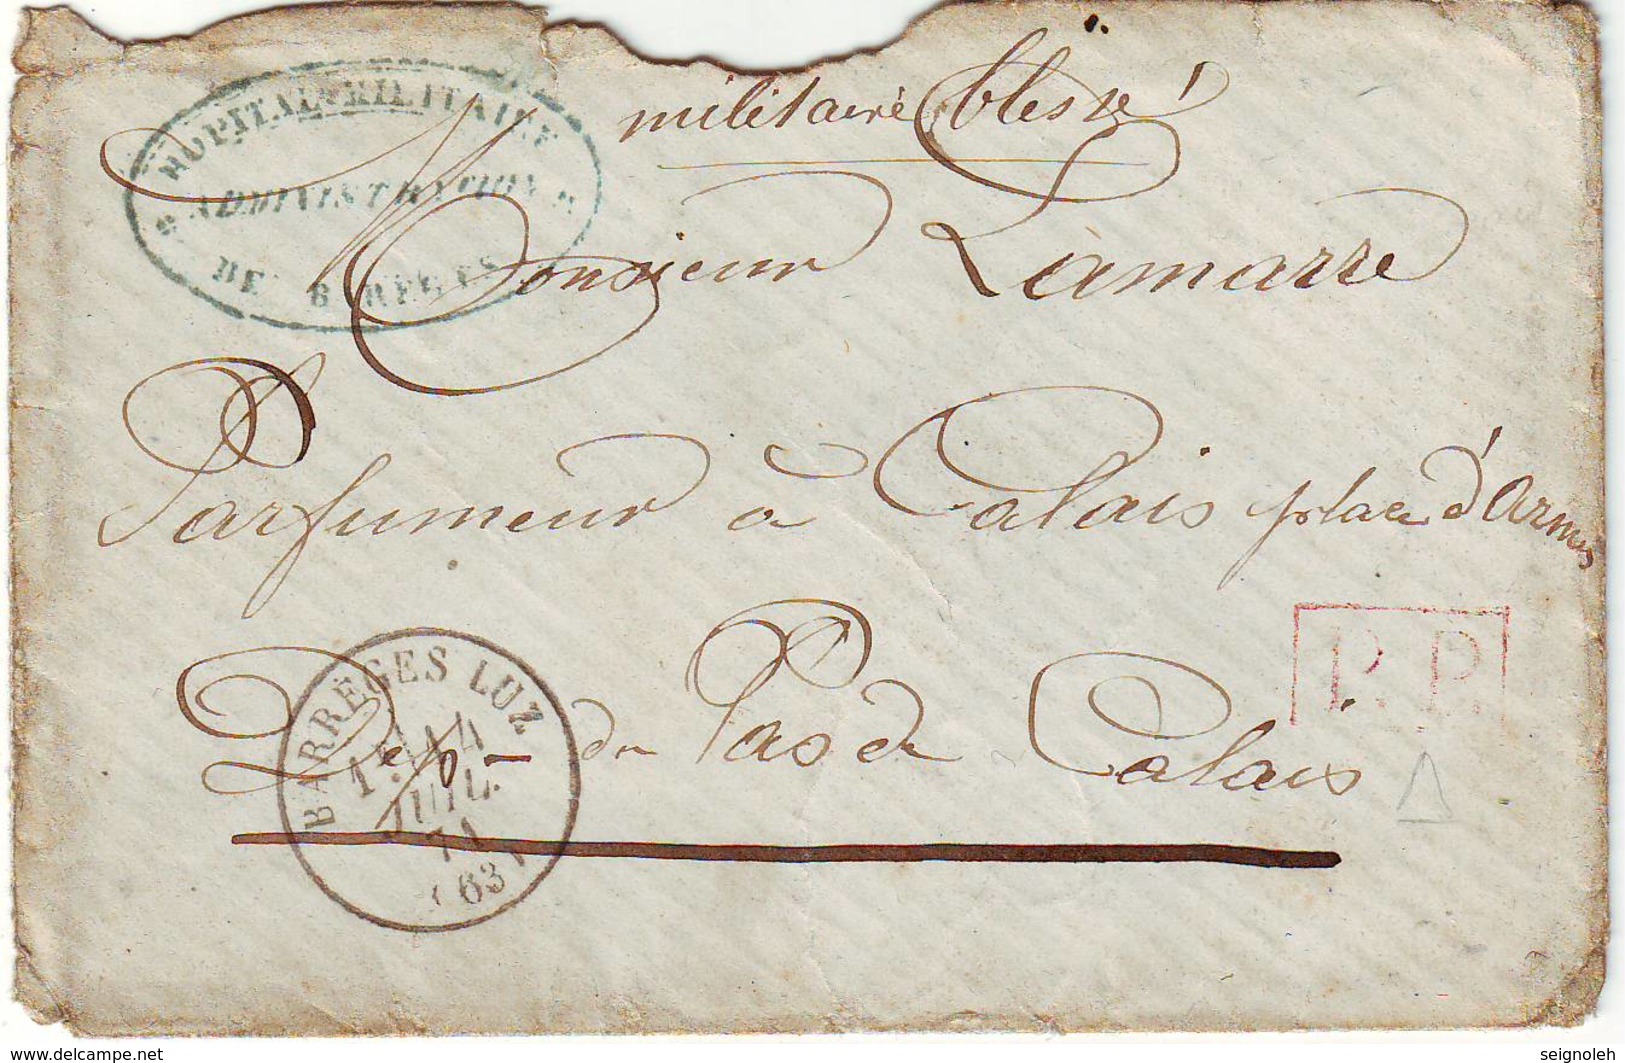 militaire blessé
HOPITAL MILITAIRE
ADMINISTRATION
DE BARÈGES
Monsieur Lamarre
Parfumeur à Calais place d'Armes
P.P.
Dep du Pas de Calais
BARRÈGES LUZ
14
JUIL.
71
(63)
www.delcampe.net
seignoleh